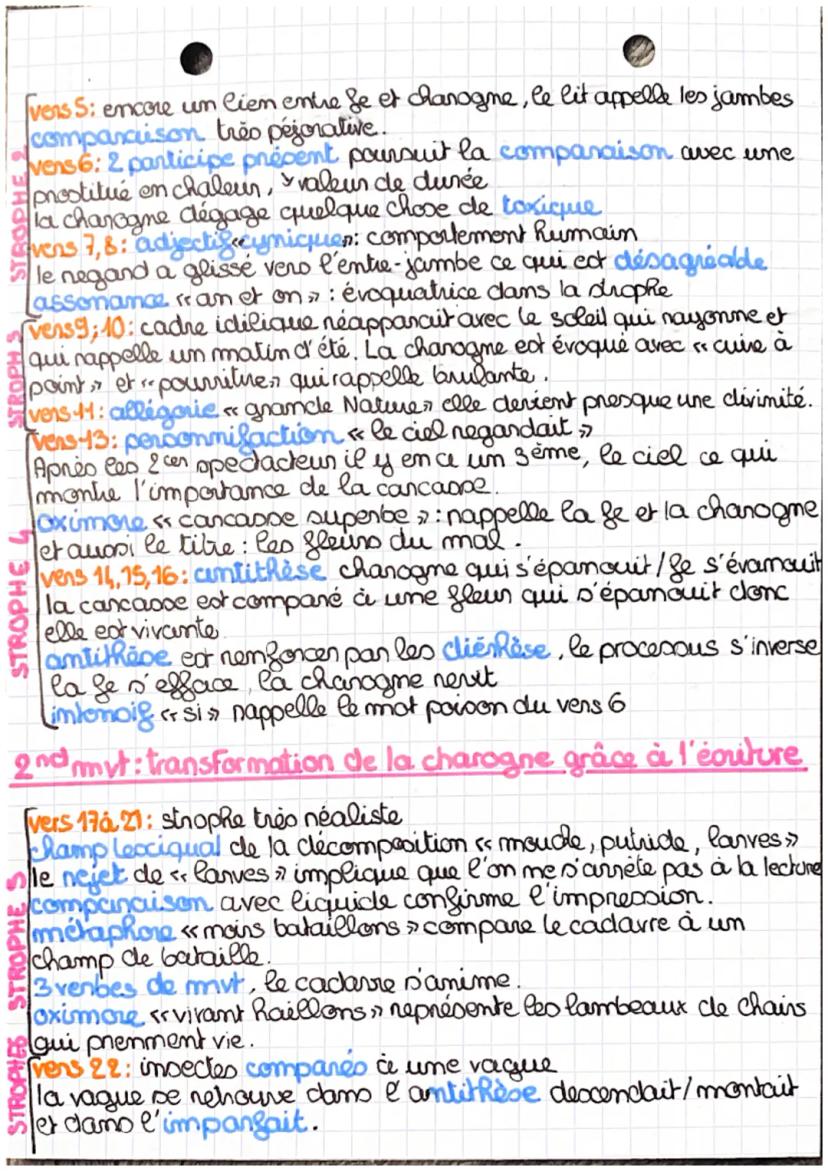 STROPHE 2
vers 5: encore un lien entre fe et charogne, le lit appelle les jambes
comparaison très péjorative.
vers 6: 2 participe présent poursuit la comparaison avec une
prostitué en chaleur, valeur de durée
la charogne dégage quelque chose de toxique
vers 7,8: adjectif «cynique»: comportement humain
le regard a glissé vers l'entre-jambe ce qui est désagréable
assonance «an et on» : évoquatrice dans la strophe
STROPH 3
vers 9;10: cadre idilique réapparait avec le soleil qui rayonne et
qui rappelle un matin d'été. La charogne est évoqué avec «cuire à
point» et «pourriture» qui rappelle brulante.
vers 11: allégorie «grande Nature» elle devient presque une divinité.
STROPHE 4
vers 13: personnifaction «le ciel regardait»
Après les 2 1ers spectacteur il y en a un 3ème, le ciel ce qui
montre l'importance de la carcasse.
oximore «carcasse superbe» : rappelle la fe et la charogne
et aussi le titre : les fleurs du mal.
vers 14,15,16: antithèse charogne qui s'épanouit/fe s'évanouit
la carcasse est comparé à une fleur qui s'épanouit donc
elle est vivante
antithèse est renforcer par les diérhèse, le processus s'inverse
la fe s'efface, la charogne revit
intensif «si» rappelle le mot poison du vers 6
2nd mvt: transformation de la charogne grâce à l'écriture
STROPHE 5
vers 17 à 21: strophe très réaliste
champ lexciqual de la décomposition «mouche, putride, larves»
le rejet de «larves» implique que l'on ne s'arrète pas à la lecture
comparaison avec liquide confirme l'impression.
métaphore «noirs bataillons» compare le cadavre à un
champ de bataille.
3 verbes de mvt, le cadavre s'anime.
oximore «vivant haillons» représente les lambeaux de chairs
qui prennent vie.
STROPHE 6
vers 22: insectes comparés à une vague
la vague se retrouve dans l'antithèse descendait/montait
et dans l'imparfait.